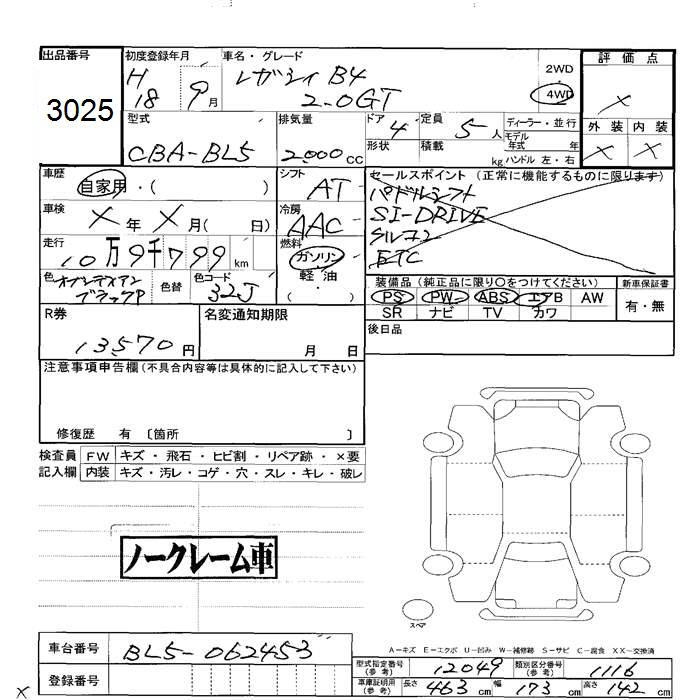 出品番号
3025
初度登録年月
H
18 9月
車名・グレード
レガシィ B4
2.0GT
2WD
4WD
評価点
×
外装 内装
× ×
型式
CBA-BL5
排気量
2000cc
ドア 4
形状
定員 5人
積載 kg
ディーラー・並行
モデル
年式 年
ハンドル 左・右
車歴
自家用・( )
車検
× 年 × 月( 日)
走行
10万9千799km
色
オブシディアン
ブラックP
色替
色コード
32J
シフト
AT
冷房
AAC
燃料
ガソリン
軽油・
( )
セールスポイント (正常に機能するものに限ります)
パドルシフト
SI-DRIVE
ETC
装備品 (純正品に限り○をつけてください)
PS PW ABS エアB AW
SR ナビ TV カワ
新車保証書
有・無
後日品
R券
13570円
名変通知期限
月 日
注意事項申告欄 (不具合内容等は具体的に記入して下さい)
修復歴 有 〔箇所 〕
検査員 FW キズ・飛石・ヒビ割・リペア跡・×要
記入欄 内装 キズ・汚レ・コゲ・穴・スレ・キレ・破レ
ノークレーム車
スペア
A−キズ E−エクボ U−凹み W−補修跡 S−サビ C−腐食 XX−交換済
車台番号
BL5-062453
登録番号
型式指定番号
(参考)
12049
類別区分番号
(参考)
1116
車庫証明用
(参考)
長さ 463 cm 幅 173 cm 高さ 142 cm
×